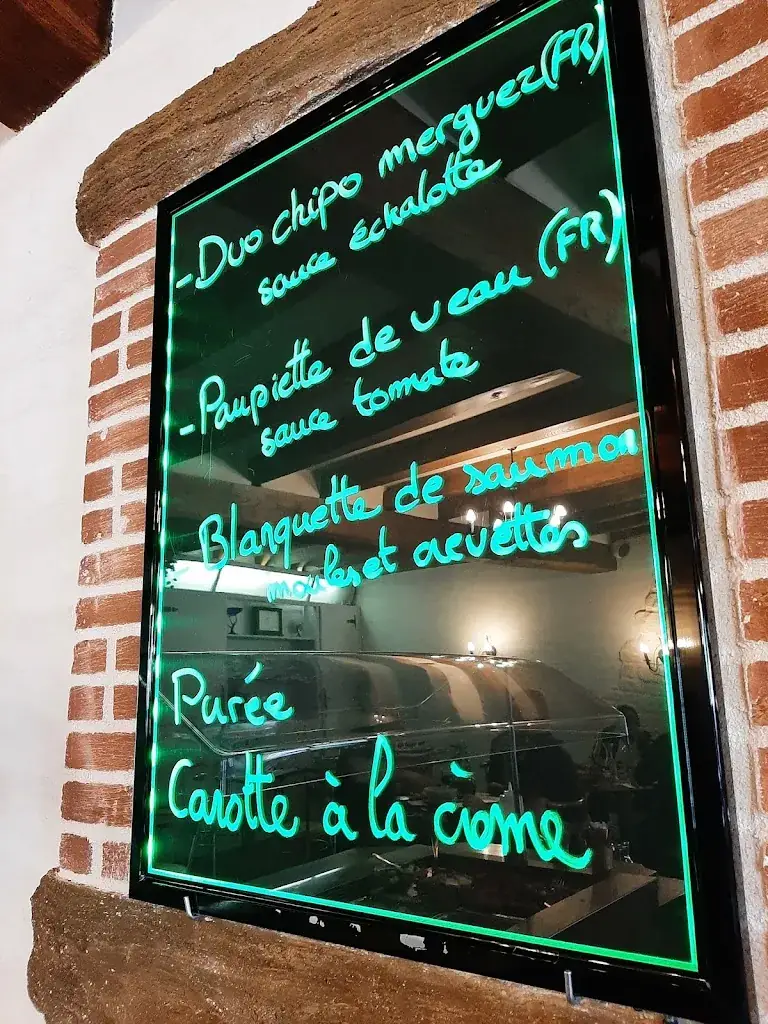 - Duo chipo merguez (FR)
sauce échalotte
- Paupiette de veau (FR)
sauce tomate
- Blanquette de saumon
moules et crevettes
Purée
Carotte à la crème